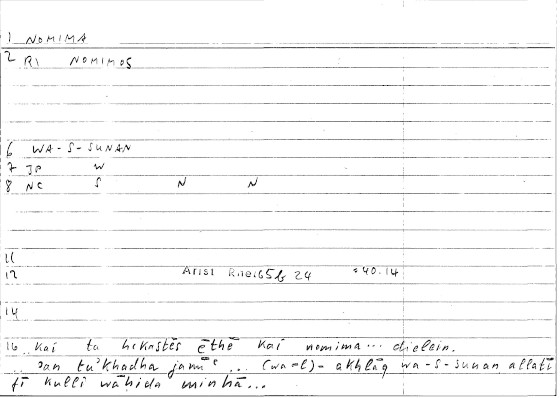 1 NOMIMA
2 RI NOMIMOS
6 WA-S-SUNAN
7 JP W
8 NC S N N
11
12 Arist Rhet 65b 24 = 40.14
14
16 kai ta hekastēs ēthē kai nomima... dielein.
ʾan tuʾkhadha jamīʿ ... (wa-l)-akhlāq wa-s-sunan allatī
fī kulli wāḥida minhā...